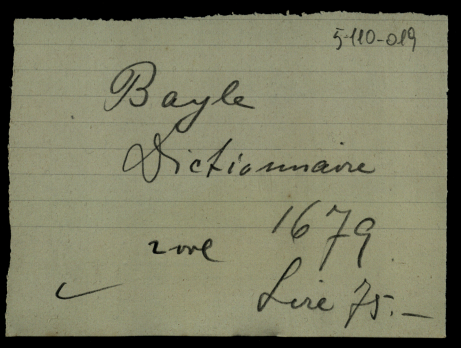 5-110-019
Bayle
Dictionnaire
1679
2 vol
Lire 75.—